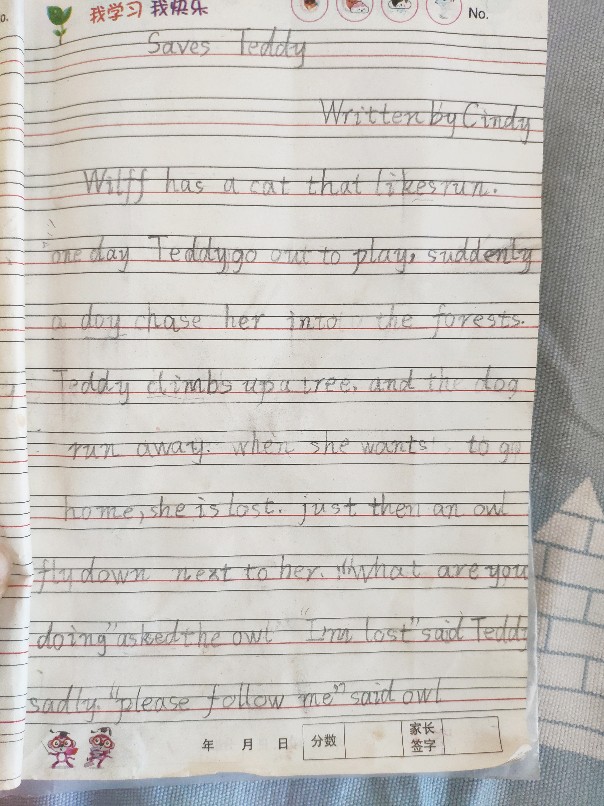 o.
我学习 我快乐
No.
Saves Teddy
Written by Cindy
Wilff has a cat that likes run.
one day Teddy go out to play, suddenly
a doy chase her into the forests.
Teddy climbs up a tree, and the dog
run away. when she wants to go
home, she is lost. just then an owl
fly down next to her. "What are you
doing" asked the owl "I'm lost" said Teddy
sadly. "please follow me" said owl
年 月 日 分数 家长签字